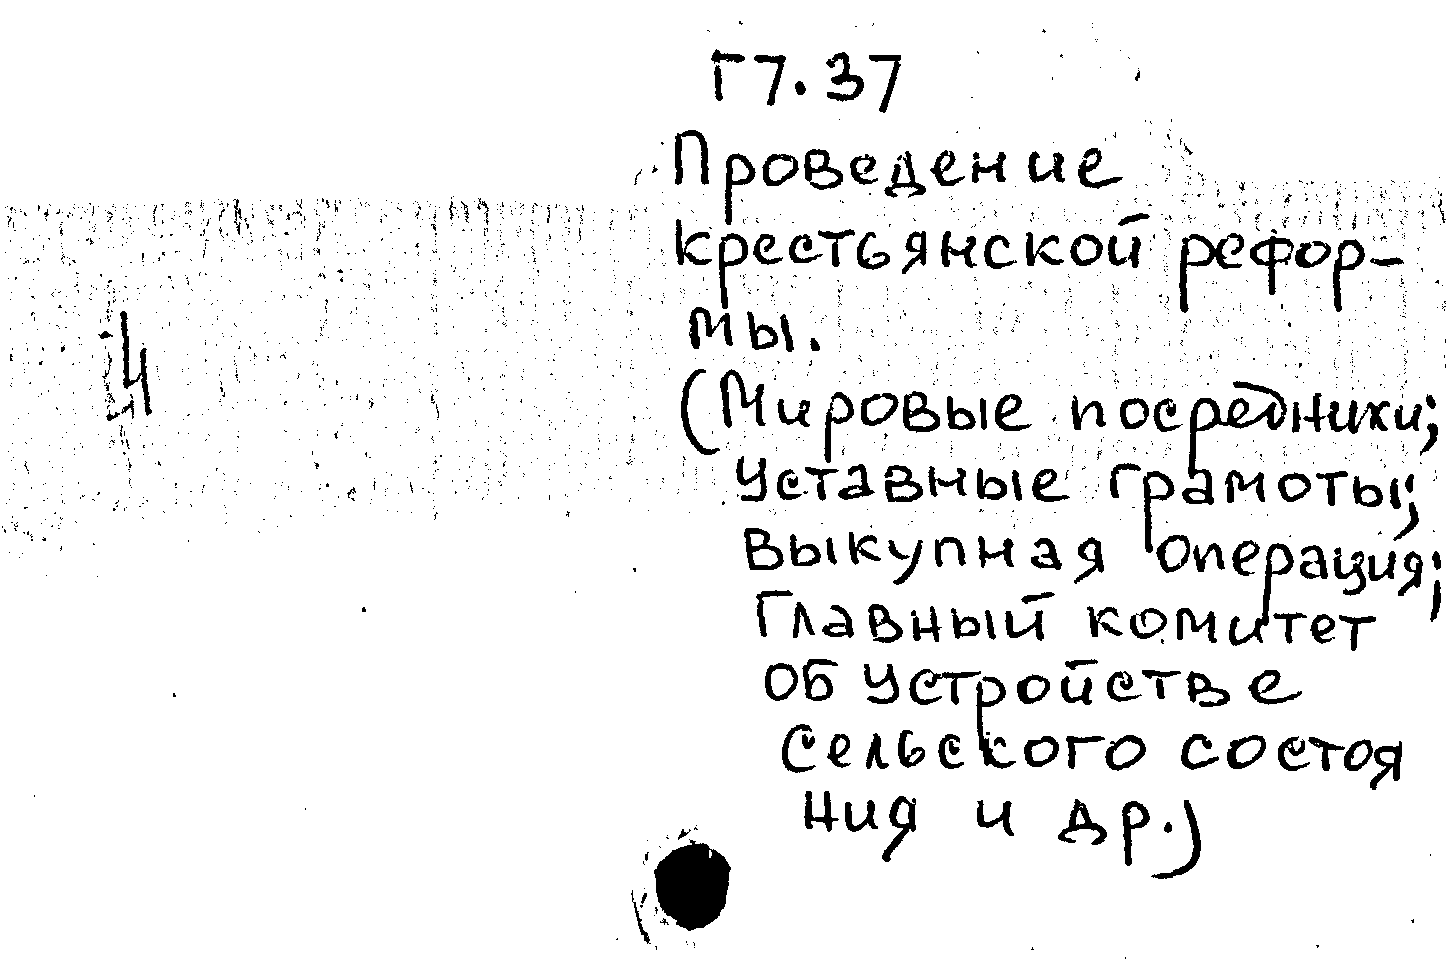 Г7.37
Проведение
крестьянской рефор-
мы.
(Мировые посредники;
Уставные грамоты;
Выкупная операция;
Главный комитет
об устройстве
сельского состоя
ния и др.)